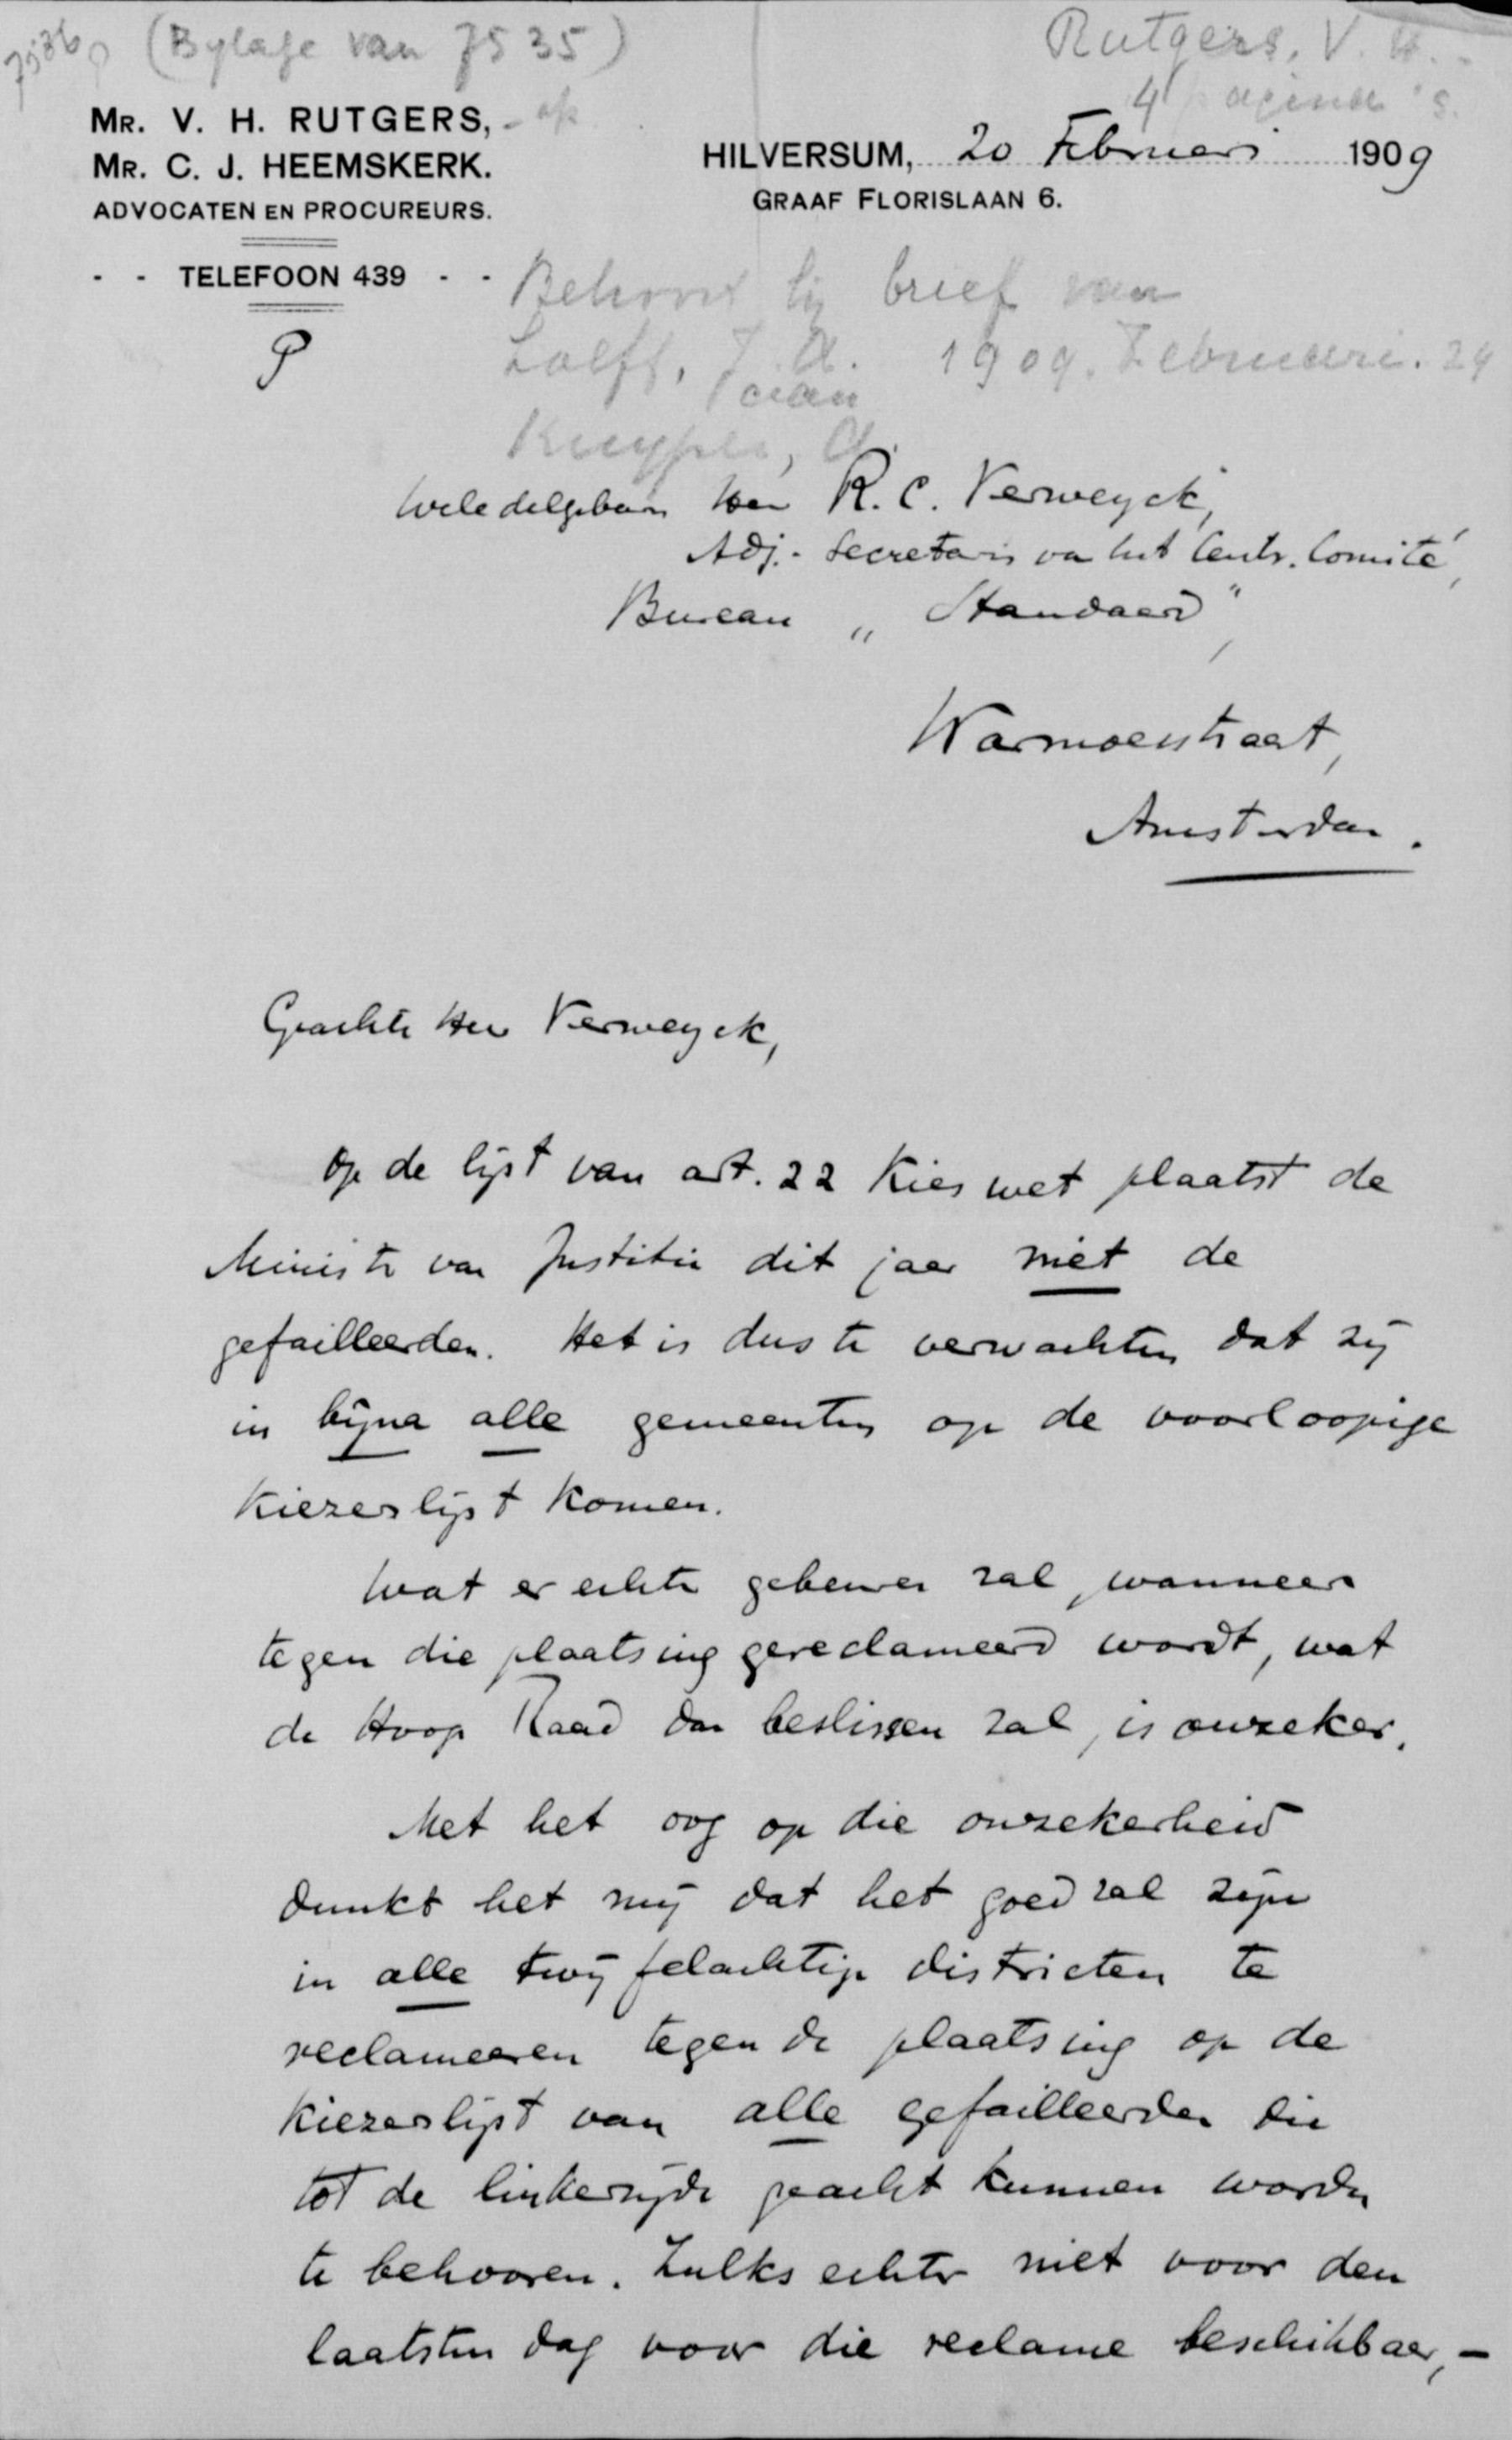 7536 (Bylage van 7535)
Rutgers, V. H.
4 pagina's.
MR. V. H. RUTGERS,
MR. C. J. HEEMSKERK.
ADVOCATEN EN PROCUREURS.
- - TELEFOON 439 - -
HILVERSUM, 20 Februari 1909
GRAAF FLORISLAAN 6.
Behoort bij brief van
Loeff, J. A. 1909. Februari. 24
aan
Kuyper, A.
Weledelgeboren Heer R. C. Verweyck,
Adj.-Secretaris van het Centr. Comité,
Bureau „Standaard",
Warmoesstraat,
Amsterdam.
Geachte Heer Verweyck,
Op de lijst van art. 22 Kieswet plaatst de
Minister van Justitie dit jaar niet de
gefailleerden. Het is dus te verwachten dat zij
in bijna alle gemeenten op de voorloopige
kiezerslijst komen.
Wat er echter gebeuren zal, wanneer
tegen die plaatsing gereclameerd wordt, wat
de Hooge Raad dan beslissen zal, is onzeker.
Met het oog op die onzekerheid
dunkt het mij dat het goed zal zijn
in alle twijfelachtige districten te
reclameeren tegen de plaatsing op de
kiezerslijst van alle gefailleerden die
tot de linkerzijde geacht kunnen worden
te behooren. Zulks echter niet voor den
laatsten dag voor die reclame beschikbaar, -